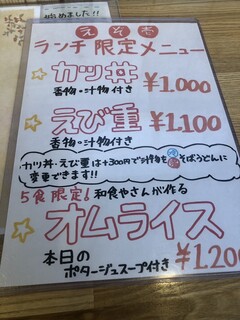 始めました!!
えそ壱
ランチ限定メニュー
カツ丼 ¥1,000
香物・汁物付き
えび重 ¥1,100
香物・汁物付き
カツ丼・えび重は+300円で汁物を温冷そばうどんに
変更できます!!
5食限定! 和食やさんが作る
オムライス
本日の
ポタージュスープ付き ¥1,200